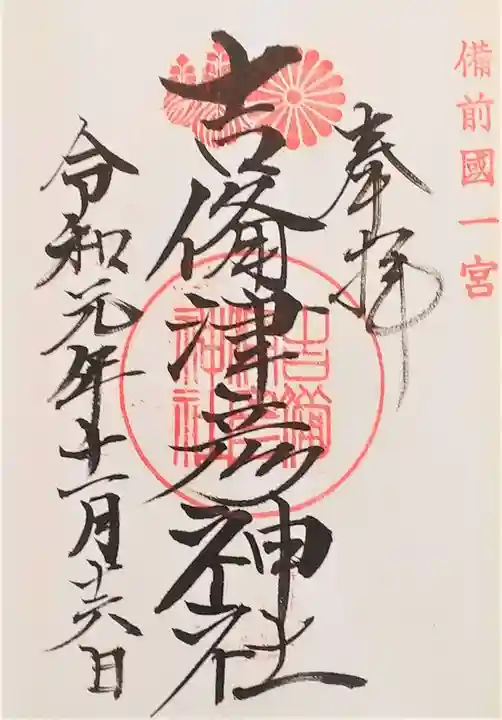 備前國一宮
奉拝
吉備津彦神社
吉備津彦神社
令和元年十一月十六日